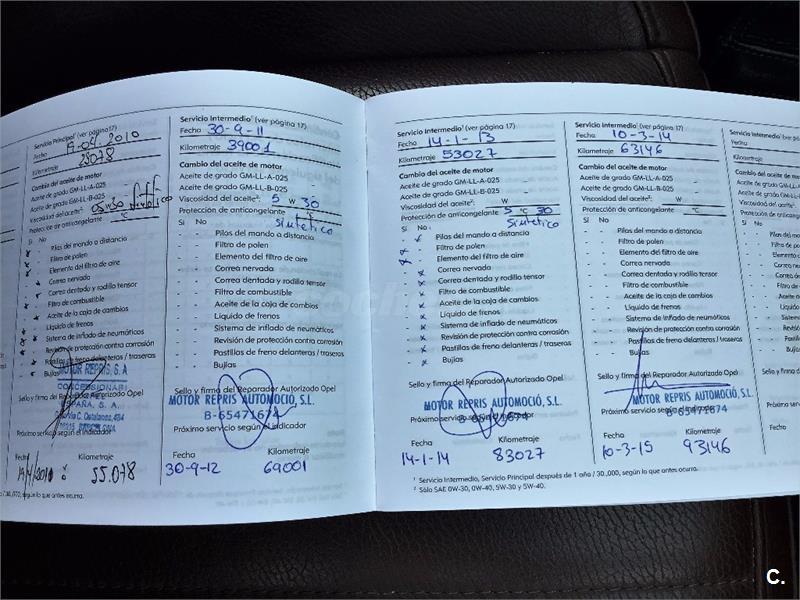 Servicio Principal¹ (ver página 17)
Fecha 19.04.2010
Kilometraje 25078
Cambio del aceite de motor
Aceite de grado GM-LL-A-025
Aceite de grado GM-LL-B-025
Viscosidad del aceite²:
Protección de anticongelante °C
Sí No
Pilas del mando a distancia
Filtro de polen
Elemento del filtro de aire
Correa nervada
Correa dentada y rodillo tensor
Filtro de combustible
Aceite de la caja de cambios
Líquido de frenos
Sistema de inflado de neumáticos
Revisión de protección contra corrosión
Pastillas de freno delanteras / traseras
Bujías
MOTOR REPRIS, S.A
CONCESSIONARI
Sello y firma del Reparador Autorizado Opel
ESPAÑA, S. A.
BARCELONA
Próximo servicio según el indicador
Fecha Kilometraje
19/4/2011 55.078
/ 30.000, según lo que antes ocurra.
Servicio Intermedio¹ (ver página 17)
Fecha 30-9-11
Kilometraje 39001
Cambio del aceite de motor
Aceite de grado GM-LL-A-025 -
Aceite de grado GM-LL-B-025 -
Viscosidad del aceite²: 5 W 30
Protección de anticongelante °C
Sintetico
Sí No
- - Pilas del mando a distancia
- - Filtro de polen
- - Elemento del filtro de aire
- - Correa nervada
- - Correa dentada y rodillo tensor
- - Filtro de combustible
- - Aceite de la caja de cambios
- - Líquido de frenos
- - Sistema de inflado de neumáticos
- - Revisión de protección contra corrosión
- - Pastillas de freno delanteras / traseras
- - Bujías
Sello y firma del Reparador Autorizado Opel
MOTOR REPRIS AUTOMOCIÓ, S.L.
B-65471674
Próximo servicio según el indicador
Fecha Kilometraje
30-9-12 69001
Servicio Intermedio¹ (ver página 17)
Fecha 14-1-13
Kilometraje 53027
Cambio del aceite de motor
Aceite de grado GM-LL-A-025 -
Aceite de grado GM-LL-B-025 -
Viscosidad del aceite²: W
Protección de anticongelante 5 °C 30
Sintetico
Sí No
Pilas del mando a distancia
Filtro de polen
Elemento del filtro de aire
Correa nervada
Correa dentada y rodillo tensor
Filtro de combustible
Aceite de la caja de cambios
Líquido de frenos
Sistema de inflado de neumáticos
Revisión de protección contra corrosión
Pastillas de freno delanteras / traseras
Bujías
Sello y firma del Reparador Autorizado Opel
MOTOR REPRIS AUTOMOCIÓ, S.L.
Próximo servicio según el indicador
Fecha Kilometraje
14-1-14 83027
¹ Servicio Intermedio, Servicio Principal después de 1 año / 30.000, según lo que antes ocurra.
² Sólo SAE 0W-30, 0W-40, 5W-30 y 5W-40.
Servicio Intermedio¹ (ver página 17)
Fecha 10-3-14
Kilometraje 63146
Cambio del aceite de motor
Aceite de grado GM-LL-A-025 -
Aceite de grado GM-LL-B-025 -
Viscosidad del aceite²: W
Protección de anticongelante °C
Sí No
- - Pilas del mando a distancia
- - Filtro de polen
- - Elemento del filtro de aire
- - Correa nervada
- - Correa dentada y rodillo tensor
- - Filtro de combustible
- - Aceite de la caja de cambios
- - Líquido de frenos
- - Sistema de inflado de neumáticos
- - Revisión de protección contra corrosión
- - Pastillas de freno delanteras / traseras
- - Bujías
Sello y firma del Reparador Autorizado Opel
MOTOR REPRIS AUTOMOCIÓ, S.L.
B-65471674
Próximo servicio según el indicador
Fecha Kilometraje
10-3-15 93146
Servicio Intermedio
Fecha
Kilometraje
Cambio del aceite
Aceite de grado GM
Aceite de grado GM
Viscosidad del
Protección de
Sí No
Sello y firma
Próximo
Fecha
C.